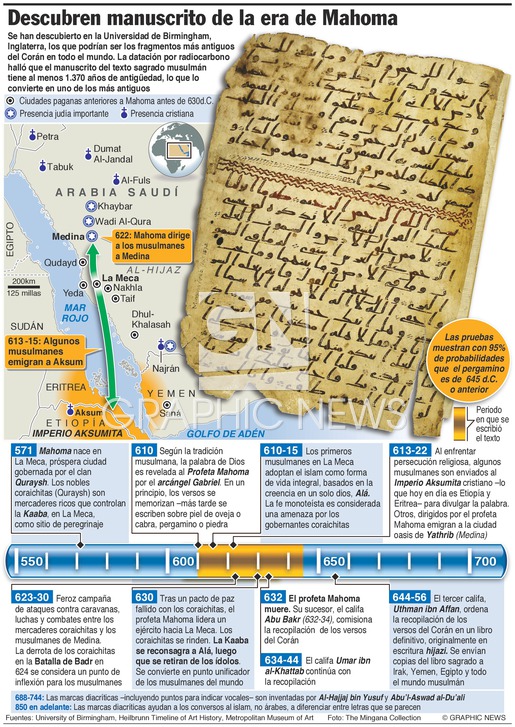 Descubren manuscrito de la era de Mahoma
Se han descubierto en la Universidad de Birmingham,
Inglaterra, los que podrían ser los fragmentos más antiguos
del Corán en todo el mundo. La datación por radiocarbono
halló que el manuscrito del texto sagrado musulmán
tiene al menos 1.370 años de antigüedad, lo que lo
convierte en uno de los más antiguos
Ciudades paganas anteriores a Mahoma antes de 630d.C.
Presencia judía importante
Presencia cristiana
Petra
Dumat
Al-Jandal
Tabuk
Al-Fuls
ARABIA SAUDÍ
Khaybar
Wadi Al-Qura
Medina
622: Mahoma dirige
a los musulmanes
a Medina
EGIPTO
Qudayd
AL-HIJAZ
La Meca
200km
125 millas
Yeda
Nakhla
Taif
MAR
ROJO
Dhul-
Khalasah
SUDÁN
613 -15: Algunos
musulmanes
emigran a Aksum
Najrán
ERITREA
YEMEN
Saná
Aksum
ETIOPÍA
IMPERIO AKSUMITA
GOLFO DE ADÉN
GN
GRAPHIC NEWS
Las pruebas
muestran con 95%
de probabilidades
que el pergamino
es de 645 d.C.
o anterior
Periodo
en que se
escribió
el texto
571 Mahoma nace en
La Meca, próspera ciudad
gobernada por el clan
Quraysh. Los nobles
coraichitas (Quraysh) son
mercaderes ricos que controlan
la Kaaba, en La Meca,
como sitio de peregrinaje
610 Según la tradición
musulmana, la palabra de Dios
es revelada al Profeta Mahoma
por el arcángel Gabriel. En un
principio, los versos se
memorizan —más tarde se
escriben sobre piel de oveja o
cabra, pergamino o piedra
610-15 Los primeros
musulmanes en La Meca
adoptan el islam como forma
de vida integral, basados en la
creencia en un solo dios, Alá.
La fe monoteista es considerada
una amenaza por los
gobernantes coraichitas
613-22 Al enfrentar
persecución religiosa, algunos
musulmanes son enviados al
Imperio Aksumita cristiano –lo
que hoy en día es Etiopia y
Eritrea– para divulgar la palabra.
Otros, dirigidos por el profeta
Mahoma emigran a la ciudad
oasis de Yathrib (Medina)
550
600
650
700
623-30 Feroz campaña
de ataques contra caravanas,
luchas y combates entre los
mercaderes coraichitas y los
musulmanes de Medina.
La derrota de los coraichitas
en la Batalla de Badr en
624 se considera un punto de
inflexión para los musulmanes
630 Tras un pacto de paz
fallido con los coraichitas, el
profeta Mahoma lidera un
ejército hacia La Meca. Los
coraichitas se rinden. La Kaaba
se reconsagra a Alá, luego
que se retiran de los ídolos.
Se convierte en punto unificador
de los musulmanes del mundo
632 El profeta Mahoma
muere. Su sucesor, el califa
Abu Bakr (632-34), comisiona
la recopilación de los versos
del Corán
634-44 El califa Umar ibn
al-Khattab continúa con
la recopilación
644-56 El tercer califa,
Uthman ibn Affan, ordena
la recopilación de los versos
del Corán en un libro
definitivo, originalmente en
escritura hijazi. Se envían
copias del libro sagrado a
Irak, Yemen, Egipto y todo
el mundo musulmán
688-744: Las marcas diacríticas –incluyendo puntos para indicar vocales– son inventadas por Al-Hajjaj bin Yusuf y Abu'l-Aswad al-Du'ali
850 en adelante: Las marcas diacríticas ayudan a los conversos al islam, no árabes, a diferenciar entre letras que se parecen
Fuentes: University of Birmingham, Heilbrunn Timeline of Art History, Metropolitan Museum of Art
Foto: The Mingana Collection
© GRAPHIC NEWS